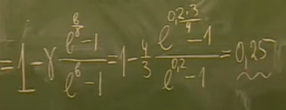 = 1 - γ (e^{δ/γ} - 1)/(e^δ - 1) = 1 - 4/3 (e^{0,2·3/4} - 1)/(e^{0,2} - 1) = 0,25